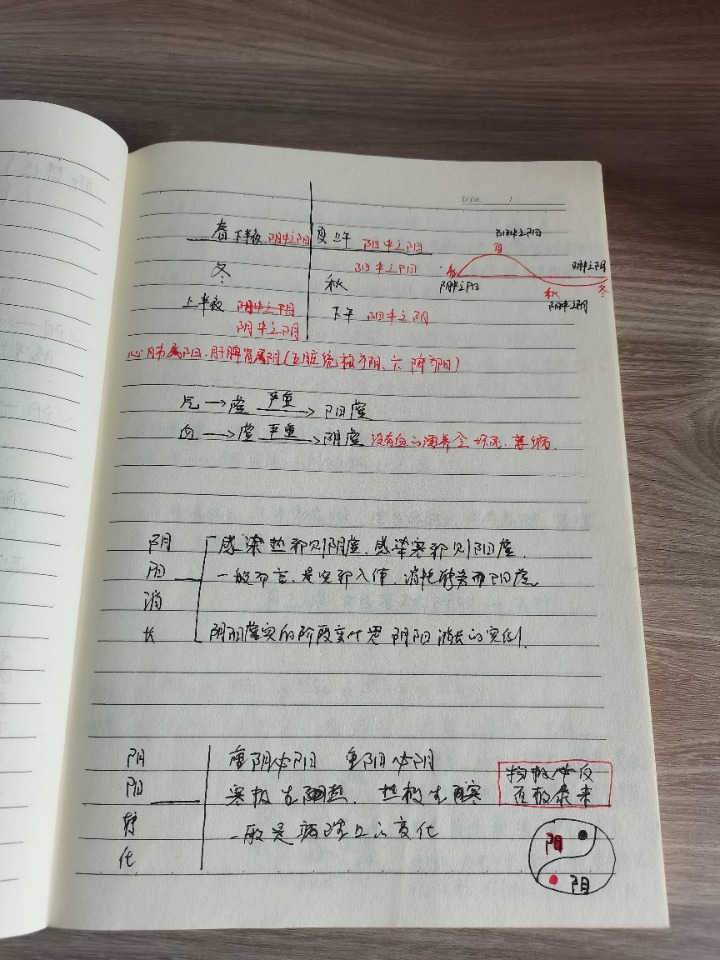 Date: /
春 下半夜 阴中之阳 夏 上午 阳中之阳
阳中之阳
冬 秋 阳中之阳
上半夜 阴中之阴 下午 阳中之阴
阴中之阴
春 夏 秋 冬
阴中之阳 阴中之阴 阳中之阴
心肺属阳.肝脾肾属阴(五脏统 为阴、六 为阳)
气→虚 严重→阳虚
血→虚 严重→阴虚 没有血的濡养会坏死、萎缩.
阴阳消长
感染热邪则阴虚.感染寒邪则阳虚.
一般而言.是实邪入体,消耗 而阳虚
阴阳虚实的阶段变 阴阳消长的实例.
阴阳转化
重阴必阳 重阳必阴
寒极生热.热极生寒
一般是病理上的变化
物极必反
否极泰来
阳
阴